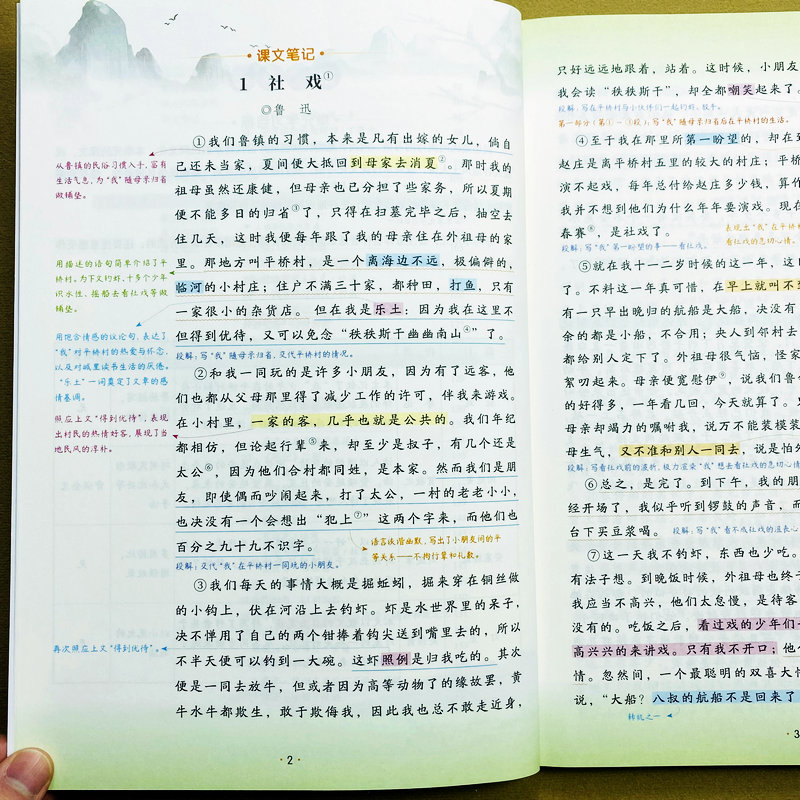 课文笔记
1 社 戏①
◎鲁 迅
①我们鲁镇的习惯，本来是凡有出嫁的女儿，倘自
己还未当家，夏间便大抵回到母家去消夏②。那时我的
祖母虽然还康健，但母亲也已分担了些家务，所以夏期
便不能多日的归省③了，只得在扫墓完毕之后，抽空去
住几天，这时我便每年跟了我的母亲住在外祖母的家
里。那地方叫平桥村，是一个离海边不远，极偏僻的，
临河的小村庄；住户不满三十家，都种田，打鱼，只有
一家很小的杂货店。但在我是乐土：因为我在这里不
但得到优待，又可以免念“秩秩斯干幽幽南山④”了。
段解：写“我”随母亲归省，交代平桥村的情况。
②和我一同玩的是许多小朋友，因为有了远客，他
们也都从父母那里得了减少工作的许可，伴我来游戏。
在小村里，一家的客，几乎也就是公共的。我们年纪
都相仿，但论起行辈⑤来，却至少是叔子，有几个还是
太公⑥，因为他们合村都同姓，是本家。然而我们是朋
友，即使偶而吵闹起来，打了太公，一村的老老小小，
也决没有一个会想出“犯上⑦”这两个字来，而他们也
百分之九十九不识字。
语言诙谐幽默，写出了小朋友间的平
等关系——不拘行辈和礼数。
段解：交代“我”在平桥村一同玩的小朋友。
③我们每天的事情大概是掘蚯蚓，掘来穿在铜丝做
的小钩上，伏在河沿上去钓虾。虾是水世界里的呆子，
决不惮用了自己的两个钳捧着钩尖送到嘴里去的，所以
不半天便可以钓到一大碗。这虾照例是归我吃的。其次
便是一同去放牛，但或者因为高等动物了的缘故罢，黄
牛水牛都欺生，敢于欺侮我，因此我也总不敢走近身，
从鲁镇的民俗习惯入手，富有
生活气息，为“我”随母亲归省
做铺垫。
用描述的语句简单介绍了平
桥村。为下文钓虾、十多个少年
识水性、摇船去看社戏等做
铺垫。
用饱含情感的议论句，表达了
“我”对平桥村的热爱与怀恋，
以及对城里读书生活的厌倦。
“乐土”一词奠定了文章的感
情基调。
照应上文“得到优待”，表现
出村民的热情好客，展现了当
地民风的淳朴。
再次照应上文“得到优待”。
·2·
只好远远地跟着，站着。这时候，小朋友
我会读“秩秩斯干”，却全都嘲笑起来了。
段解：写在平桥村与小伙伴们一起钓虾、放牛。
第一部分（第①—③段），写“我”随母亲归省后在平桥村的生活。
④至于我在那里所第一盼望的，却在到
赵庄是离平桥村五里的较大的村庄；平桥
演不起戏，每年总付给赵庄多少钱，算作
我并不想到他们为什么年年要演戏。现在
春赛⑧，是社戏了。
表现出“我”在平桥村
看社戏的急切心情。
段解：写“我”第一盼望的事——看社戏。
⑤就在我十一二岁时候的这一年，这日
了。不料这一年真可惜，在早上就叫不到
有一只早出晚归的航船是大船，决没有
余的都是小船，不合用；央人到邻村去
都给别人定下了。外祖母很气恼，怪家
絮叨起来。母亲便宽慰伊⑨，说我们鲁
的好得多，一年看几回，今天就算了。只
母亲却竭力的嘱咐我，说万不能装模装
母生气，又不准和别人一同去，说是怕外
段解：写看社戏前的波折，极力渲染“我”想去看社戏的急切心情
⑥总之，是完了。到下午，我的朋
经开场了，我似乎听到锣鼓的声音，而
台下买豆浆喝。
段解：写“我”看不成社戏的沮丧心
⑦这一天我不钓虾，东西也少吃。
有法子想。到晚饭时候，外祖母也终于
我应当不高兴，他们太怠慢，是待客
没有的。吃饭之后，看过戏的少年们
高兴兴的来讲戏。只有我不开口；他
情。忽然间，一个最聪明的双喜大悟
说，“大船？八叔的航船不是回来了
转机之一
·3